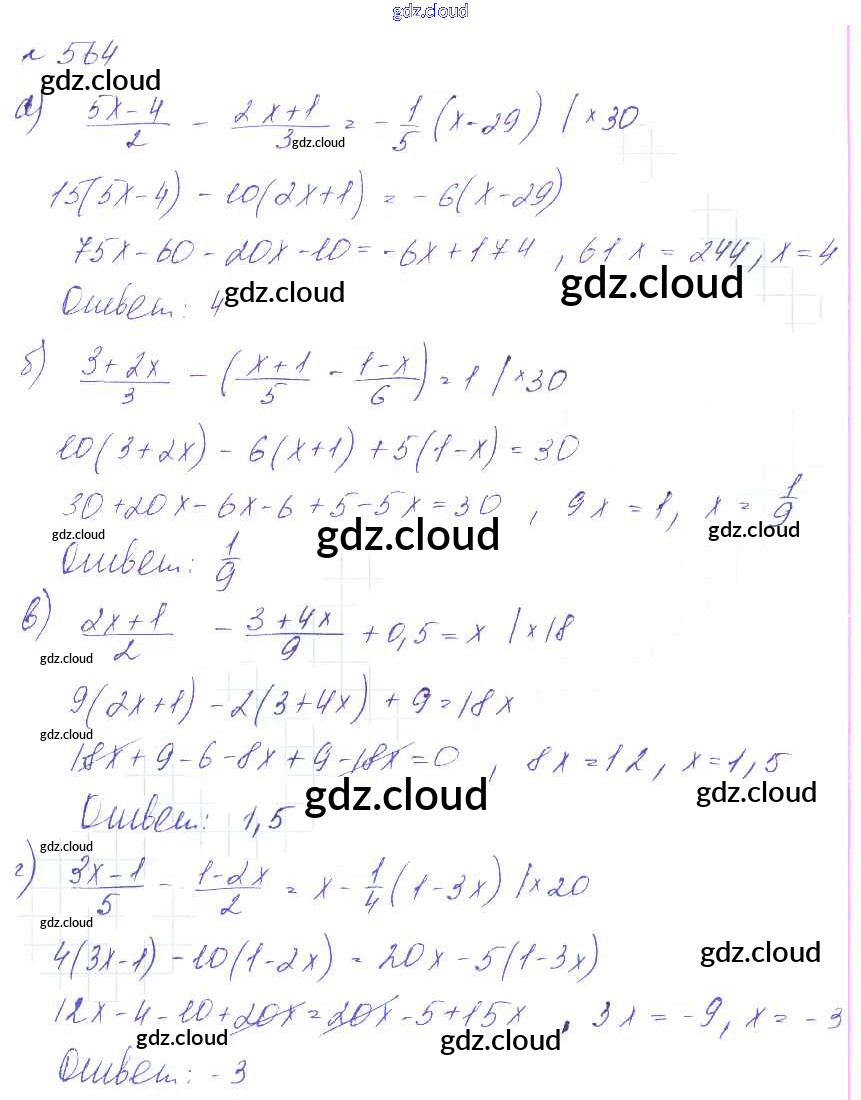 gdz.cloud
№ 564
gdz.cloud
а) (5x-4)/2 - (2x+1)/3 = -1/5 (x-29) | ×30
gdz.cloud
15(5x-4) - 10(2x+1) = -6(x-29)
75x-60-20x-10=-6x+174, 61x=244, x=4
Ответ: 4
gdz.cloud gdz.cloud
б) (3+2x)/3 - ((x+1)/5 - (1-x)/6) = 1 | ×30
10(3+2x) - 6(x+1) + 5(1-x) = 30
30+20x-6x-6+5-5x=30, 9x=1, x=1/9
gdz.cloud gdz.cloud gdz.cloud
Ответ: 1/9
в) (2x+1)/2 - (3+4x)/9 + 0,5 = x | ×18
gdz.cloud
9(2x+1) - 2(3+4x) + 9 = 18x
gdz.cloud
18x+9-6-8x+9-18x=0, 8x=12, x=1,5
gdz.cloud gdz.cloud
Ответ: 1,5
gdz.cloud
г) (3x-1)/5 - (1-2x)/2 = x - 1/4 (1-3x) | ×20
gdz.cloud
4(3x-1) - 10(1-2x) = 20x - 5(1-3x)
gdz.cloud
12x-4-10+20x=20x-5+15x, 3x=-9, x=-3
gdz.cloud gdz.cloud
Ответ: -3